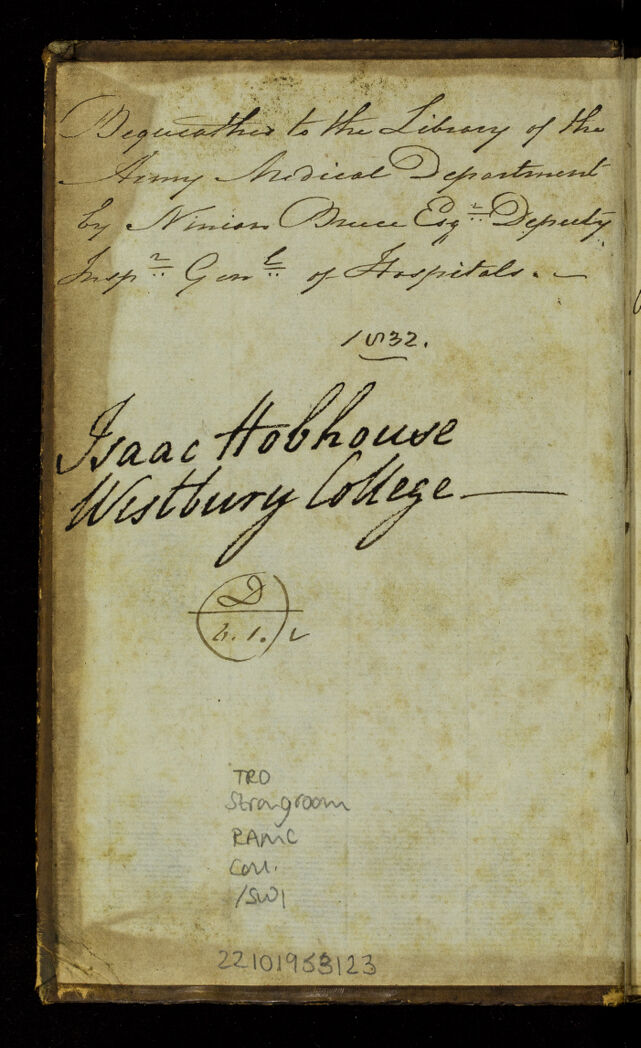 Bequeathed to the Library of the
Army Medical Department
by Ninian Bruce Esqr. Deputy
Inspr. Genl. of Hospitals. —
1832.
Isaac Hobhouse
Westbury College —
D
6. 1.
TRO
Strongroom
RAMC
Coll.
/SWI
22101953123